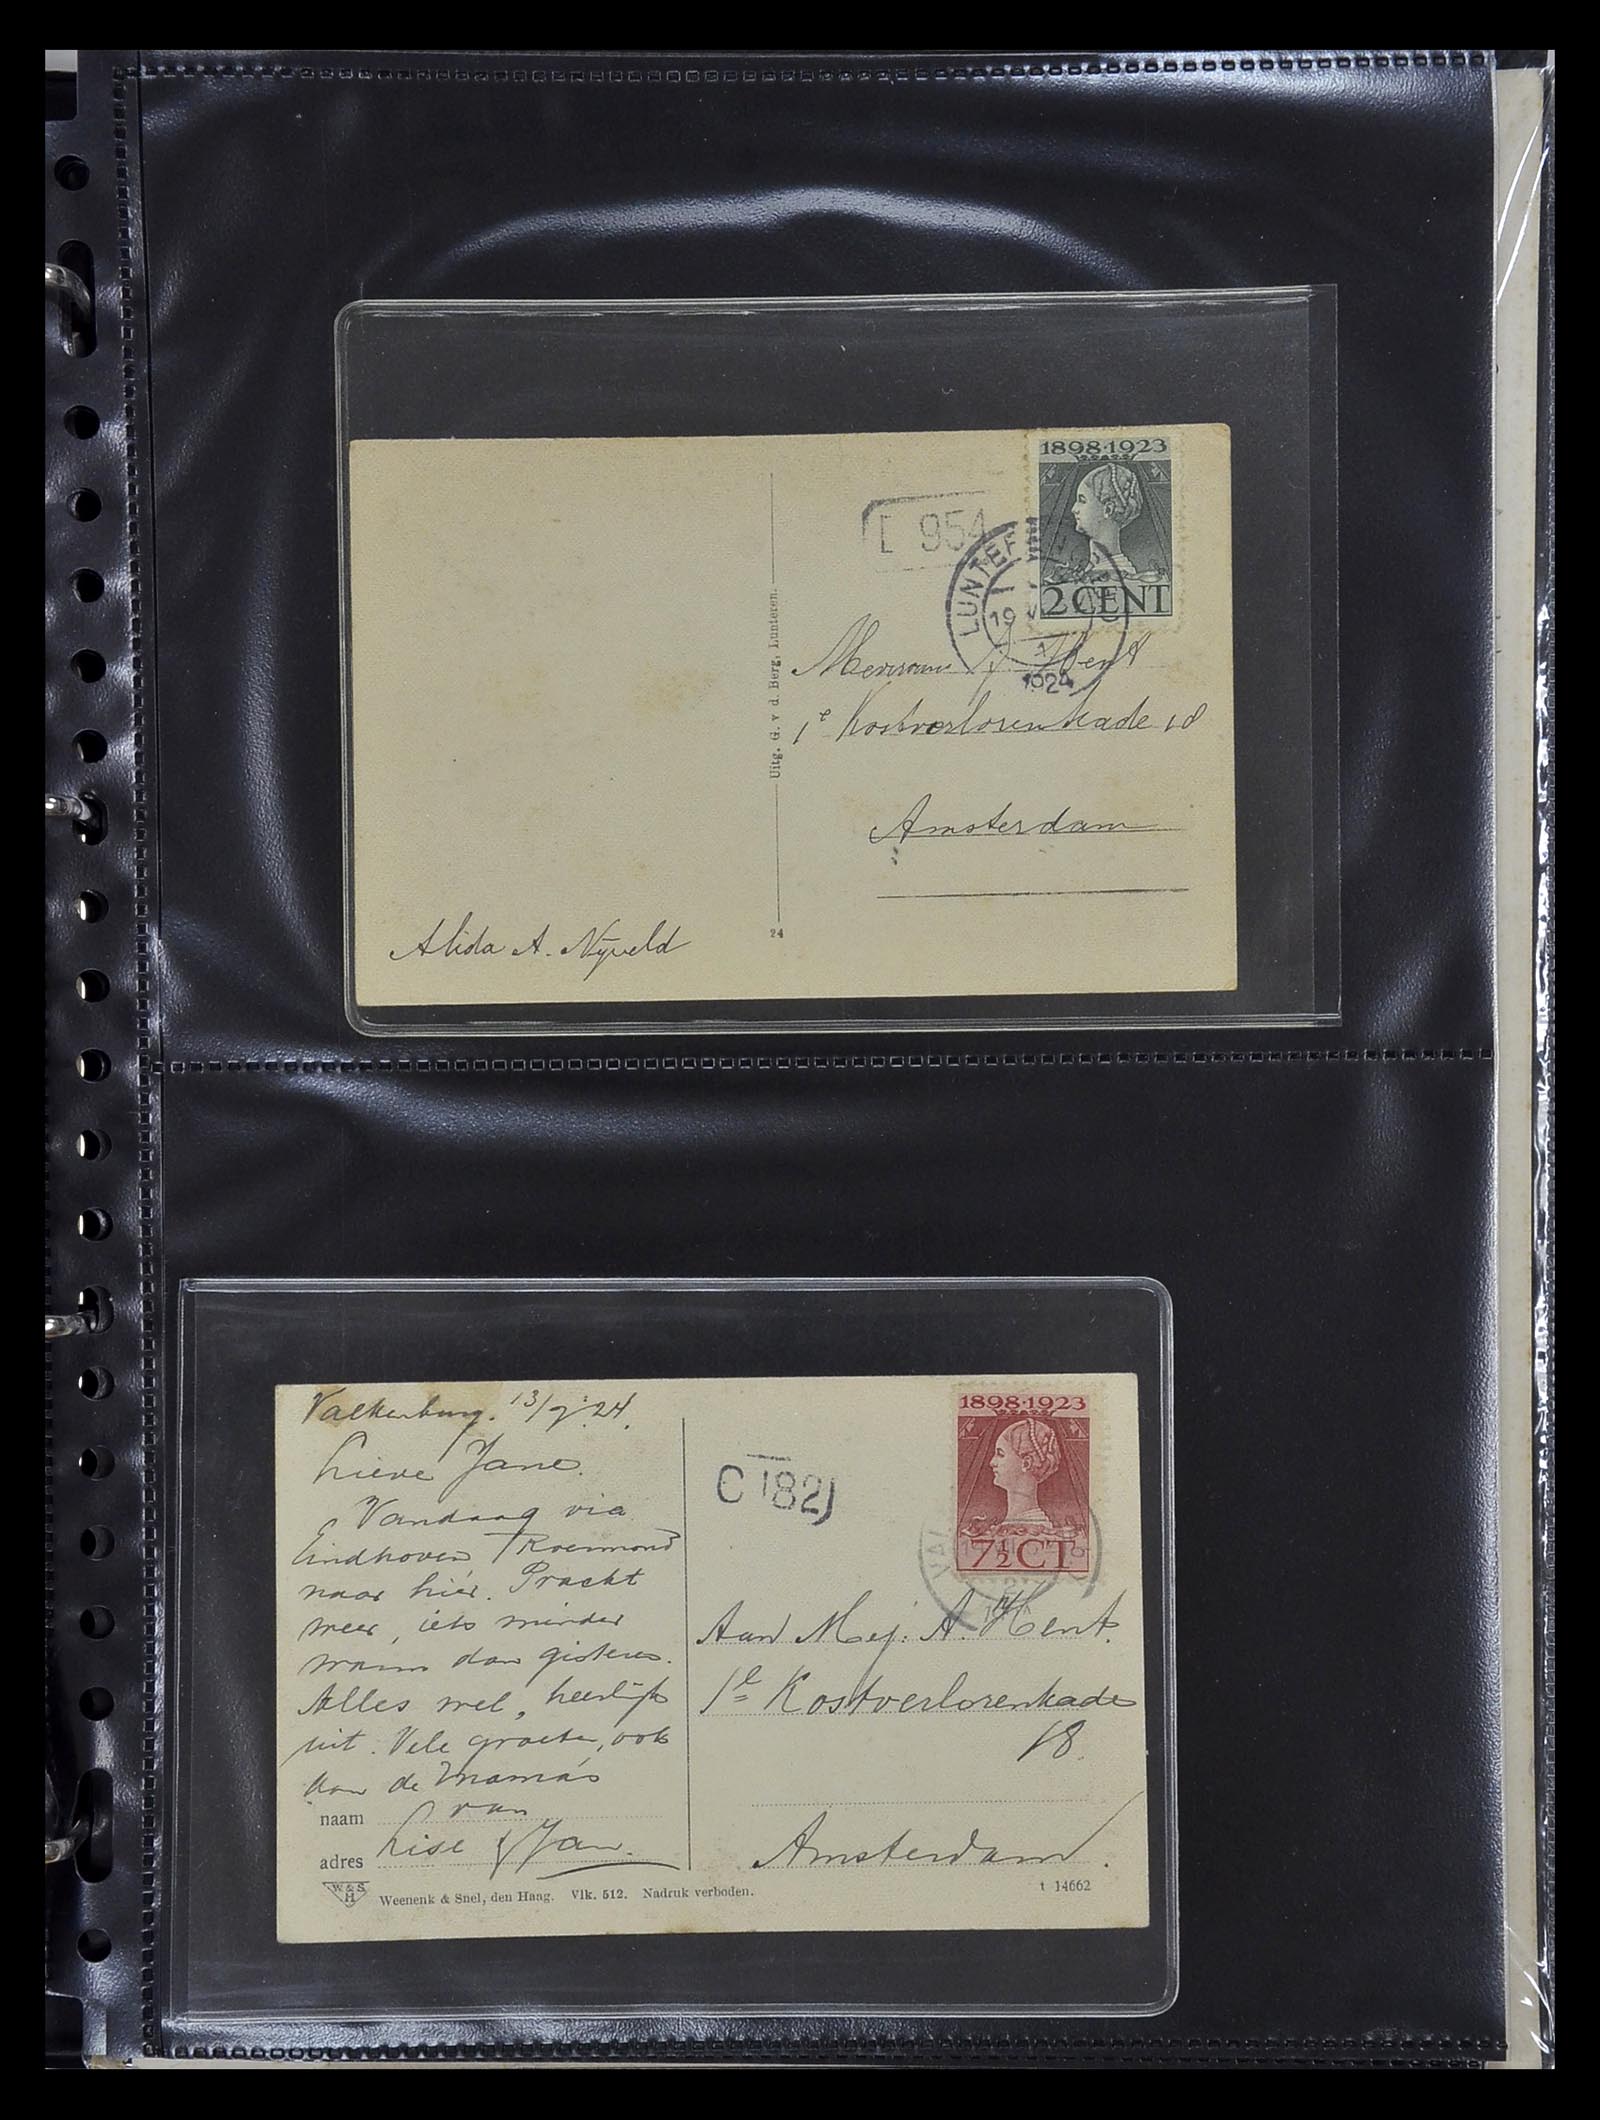 1898·1923
2 CENT
954
LUNTEREN
1924
Mevrouw
1e Kostverlorenkade 18
Amsterdam
Uitg. G. v d. Berg, Lunteren.
24
Alida A. Nijveld
Valkenburg. 13/7 '24.
Lieve Jane.
Vandaag via
Eindhoven Roermond
naar hier. Pracht
weer, iets minder
warm dan gisteren.
Alles wel, heerlijk
uit. Vele groeten, ook
aan de Mama's
van
naam
Lise & Jan.
adres
W & S
H
Weenenk & Snel, den Haag. Vlk. 512. Nadruk verboden.
1898·1923
7½ CT
C 182
VAL
Aan Mej. A. Hent.
1e Kostverlorenkade
18.
Amsterdam.
t 14662